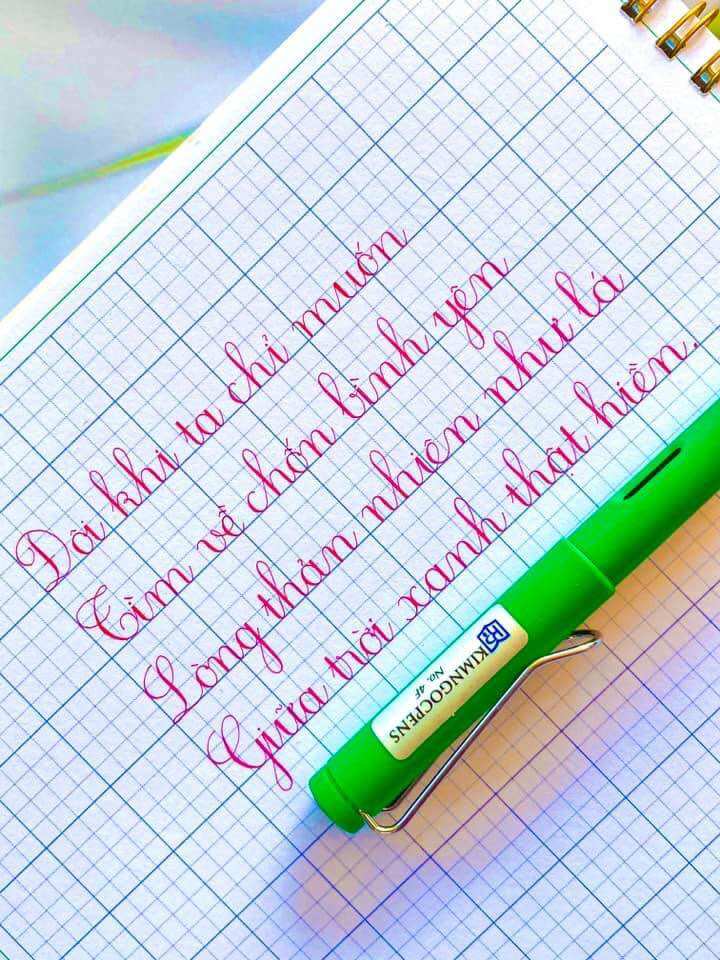 Đôi khi ta chỉ muốn
Tìm về chốn bình yên
Lòng thản nhiên như lá
Giữa trời xanh thật hiền.
KIMNGOCPENS
No. 4F